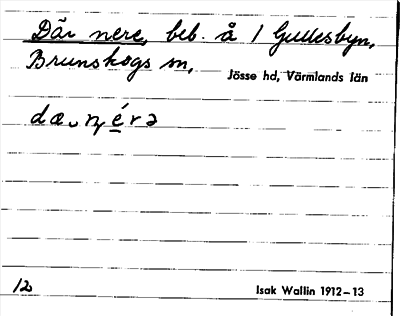 Där nere, beb. å 1 Gullesbyn,
Brunskogs sn,
Jösse hd, Värmlands län
dæ‿ɲ éra
12
Isak Wallin 1912–13